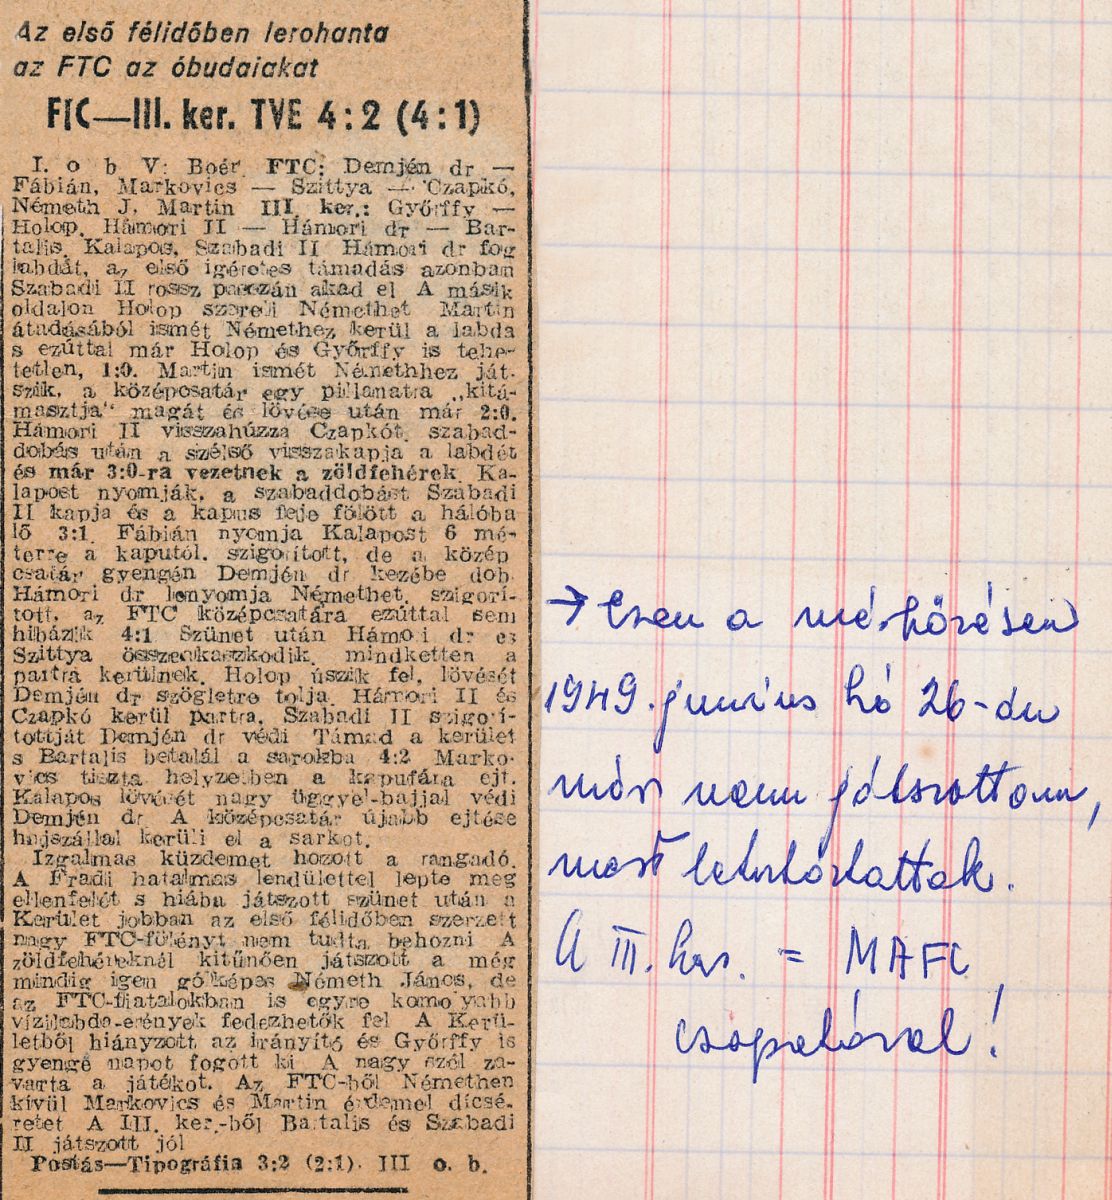 Az első félidőben lerohanta
az FTC az óbudaiakat
FTC—III. ker. TVE 4:2 (4:1)
I. o b V: Boér. FTC: Demjén dr —
Fábián, Markovics — Szittya — Czapkó,
Németh J. Martin III. ker.: Győrffy —
Holop, Hámori II — Hámori dr — Bar-
talis, Kalapos, Szabadi II Hámori dr fog
labdát, az első igéretes támadás azonban
Szabadi II rossz passzán akad el A másik
oldalon Holop szereli Némethet Martin
átadásából ismét Némethez kerül a labda
s ezúttal már Holop és Győrffy is tehe-
tetlen, 1:0. Martin ismét Némethhez ját-
szik, a középcsatár egy pillanatra „kitá-
masztja" magát és lövése után már 2:0.
Hámori II visszahúzza Czapkót, szabad-
dobás után a szélső visszakapja a labdát
és már 3:0-ra vezetnek a zöldfehérek. Ka-
lapost nyomják, a szabaddobást Szabadi
II kapja és a kapus feje fölött a hálóba
lő 3:1. Fábián nyomja Kalapost 6 mé-
terre a kaputól. szigorított, de a közép
csatár gyengén Demjén dr kezébe dob.
Hámori dr lenyomja Némethet, szigorí-
tott, az FTC középcsatára ezúttal sem
hibázik 4:1 Szünet után Hámori dr és
Szittya összeakaszkodik, mindketten a
partra kerülnek. Holop úszik fel, lövését
Demjén dr szögletre tolja. Hámori II és
Czapkó kerül partra. Szabadi II szigorí-
tottját Demjén dr védi Támad a kerület
s Bartalis betalál a sarokba 4:2 Marko-
vics tiszta helyzetben a kapufára ejt.
Kalapos lövését nagy üggyel-bajjal védi
Demjén dr. A középcsatár újabb ejtése
hajszállal kerüli el a sarkot.
Izgalmas küzdemet hozott a rangadó.
A Fradi hatalmas lendülettel lepte meg
ellenfelét s hiába játszott szünet után a
Kerület jobban az első félidőben szerzett
nagy FTC-fölényt nem tudta behozni A
zöldfehéreknél kitünően játszott a még
mindig igen gólképes Németh János, de
az FTC-fiatalokban is egyre komolyabb
vízilabda-erények fedezhetők fel A Kerü-
letből hiányzott az irányító és Győrffy is
gyenge napot fogott ki A nagy szél za-
varta a játékot. Az FTC-ből Némethen
kívül Markovics és Martin érdemel dícsé-
retet A III. ker.-ből Bartalis és Szabadi
II játszott jól
Postás—Tipográfia 3:2 (2:1). III o. b.
→ Ezen a mérkőzésen
1949. junius hó 26-án
már nem játszottam,
mert letartóztattak.
A III. ker. = MAFC
csapatával!